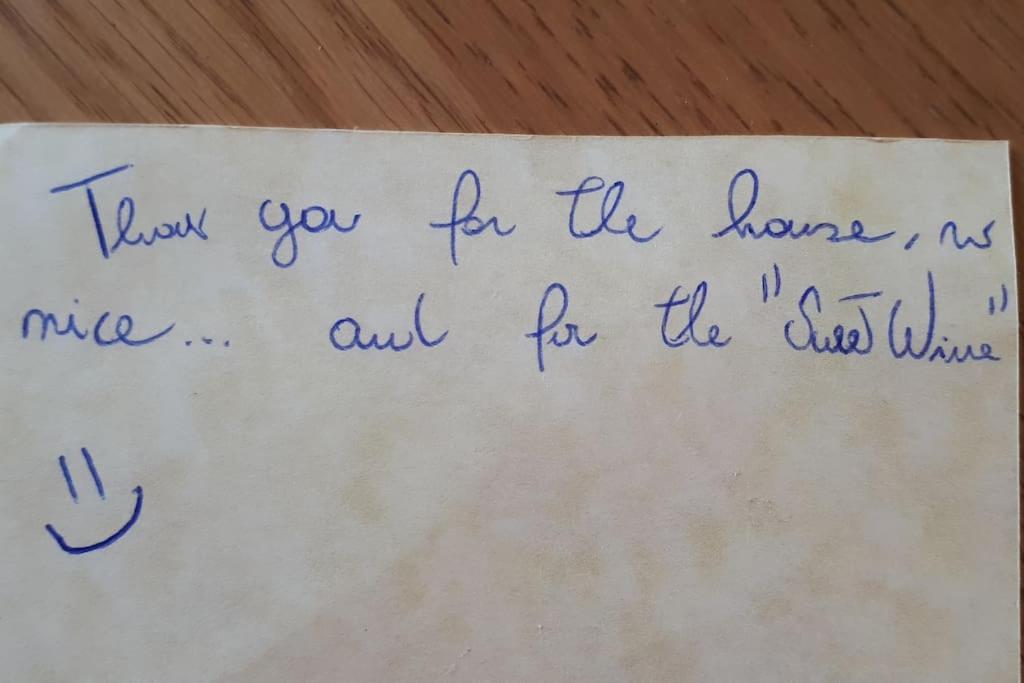 Thank you for the house, so
nice... and for the "Sweet Wine"